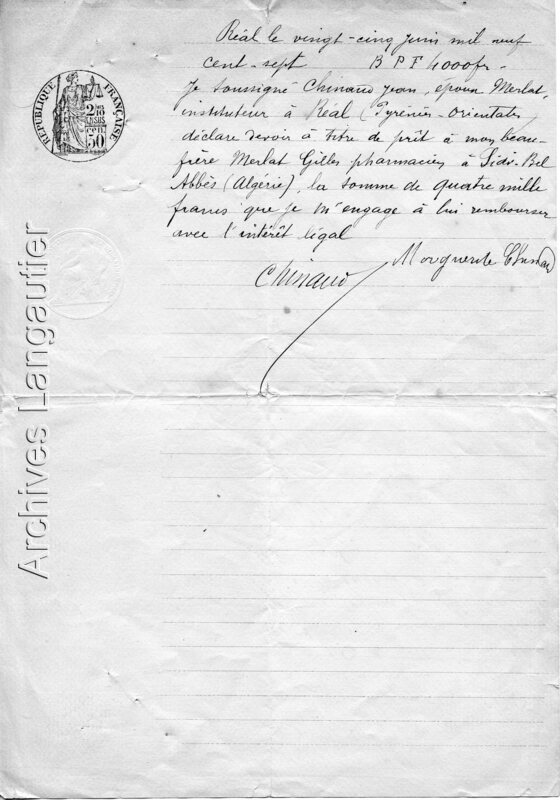 Réal le vingt-cinq juin mil neuf
cent-sept B P F 4000fr-
Je soussigné Chinaud Jean, époux Merlat,
instituteur à Réal (Pyrénées-Orientales
déclare devoir à titre de prêt à mon beau-
frère Merlat Gilles pharmacien à Sidi-Bel
Abbès (Algérie), la somme de quatre mille
francs que je m'engage à lui rembourser
avec l'intérêt légal
Marguerite Chinaud
Chinaud
RÉPUBLIQUE FRANÇAISE
50
Archives Langautier